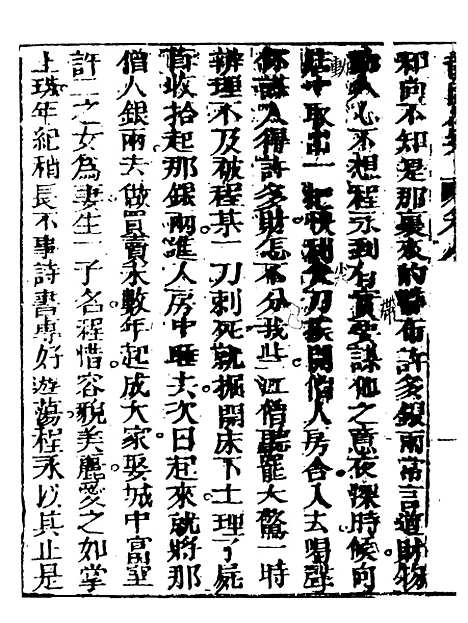 和尚不知是那裏來的帶有許多銀兩常言道財物
動人心不想程永到有賣要謀他之意夜深時候向
店中取出一把快利尖刀挨開僧人房舍入去喝聲
謀人得許多財怎不分我些江僧聽罷大驚一時
辨理不及被程某一刀刺死就掘開床下土理了屍
首收拾起那銀兩進入房中睡去次日起來就將那
僧人銀兩去做買賣未數年起成大家娶城中富室
許二之女為妻生一子名程惜容貌美麗愛之如掌
上珠年紀稍長不事詩書專好遊蕩程永以其止是